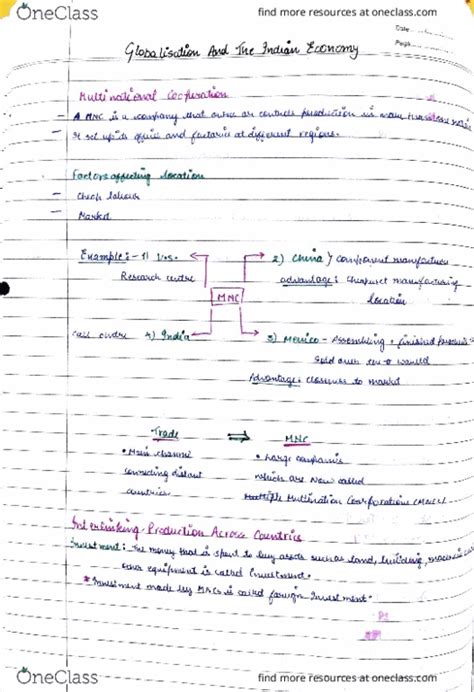 OneClass
find more resources at oneclass.com
Date
Page
Globalisation And The Indian Economy
Multinational Cooperation
- A MNC is a company that owns or controls production in more than one
- It set up its office and factories at different regions.
Factors affecting location
- Cheap labour
- Market
Example:- 1) U.S.
Research centre
2) China } component manufacture
advantage: Cheapest manufacturing
location
MNC
call centre 4) India
3) Mexico - Assembling + finished products
Sold over the world
Advantage: closeness to market
Trade ⇒ MNC
• Main channel
connecting distant
countries
• Large companies
which are Now called
Interlinking Production Across Countries
Investment: The money that is spent to buy assets such as land, building, machines
other equipment is called Investment.
* Investment made by MNCs is called foreign Investment.
OneClass
find more resources at oneclass.com